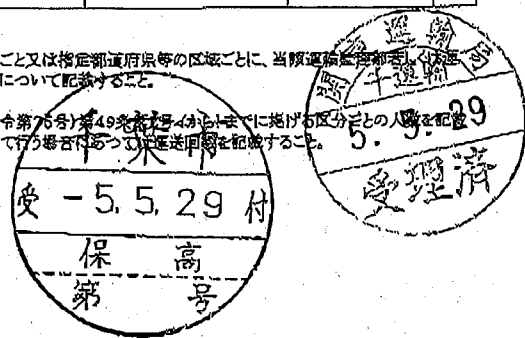 ごと又は指定都道府県等の区域ごとに、当該運輸監理部若しくは運
について記載すること。
令第75号)第49条第2号イからトまでに掲げる区分ごとの人数を記載
て行う場合にあっては運送回数を記載すること。
千葉市
受 -5.5.29 付
保 高
第 号
関東運輸局
千葉運輸
5. 5. 29
受理済